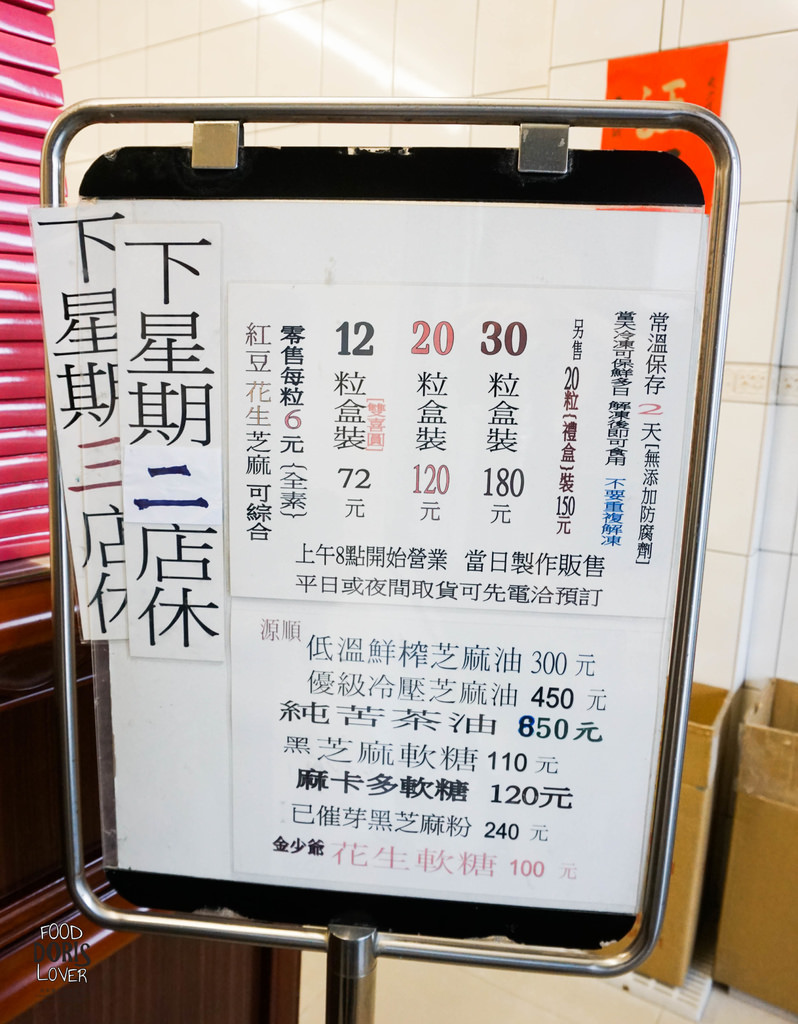 常溫保存2天[無添加防腐劑]
當天冷凍可保鮮多日 解凍後即可食用 不要重複解凍
另售20粒(禮盒)裝150元
30粒盒裝180元
20粒盒裝120元
12粒盒裝[雙喜圓]72元
零售每粒6元{全素}
紅豆花生芝麻可綜合
上午8點開始營業 當日製作販售
平日或夜間取貨可先電洽預訂
下星期二店休
下星期三店休
源順
低溫鮮榨芝麻油300元
優級冷壓芝麻油 450 元
純苦茶油 650元
黑芝麻軟糖 110 元
麻卡多軟糖 120元
已催芽黑芝麻粉 240 元
金少爺 花生軟糖 100 元
FOOD
DORIS
LOVER